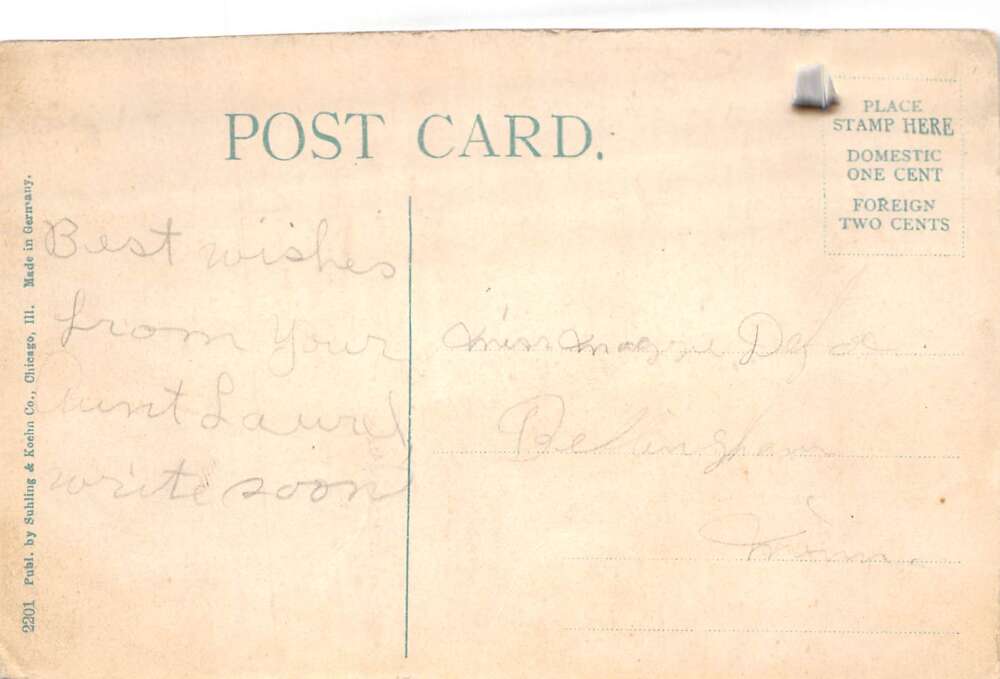 POST CARD.
PLACE
STAMP HERE
DOMESTIC
ONE CENT
FOREIGN
TWO CENTS
Best wishes
from your
Aunt Laurel
write soon
Miss Maggie
Bellingham
Minn.
2201 Publ. by Suhling & Koehn Co., Chicago, Ill. Made in Germany.